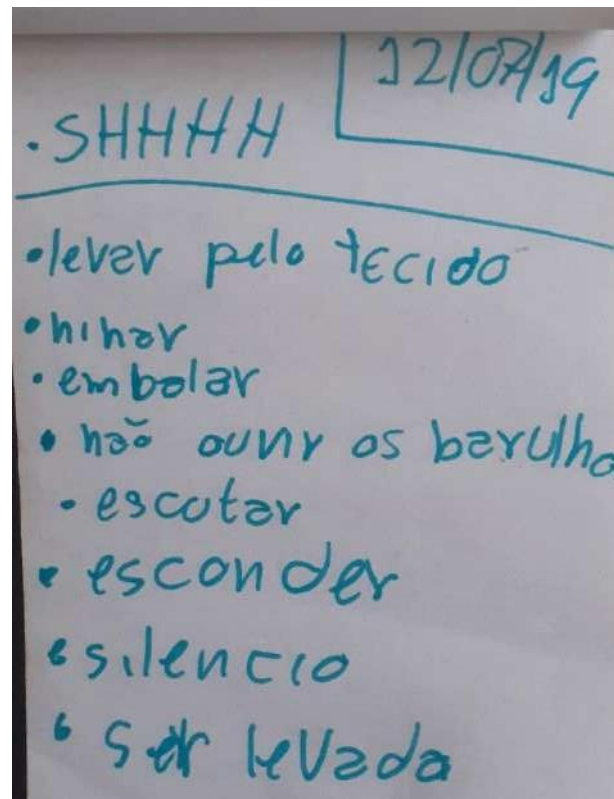 12/07/19
.SHHHH
•levar pelo tecido
•ninar
•embalar
•não ouvir os barulho
•escutar
•esconder
•silencio
•ser levada